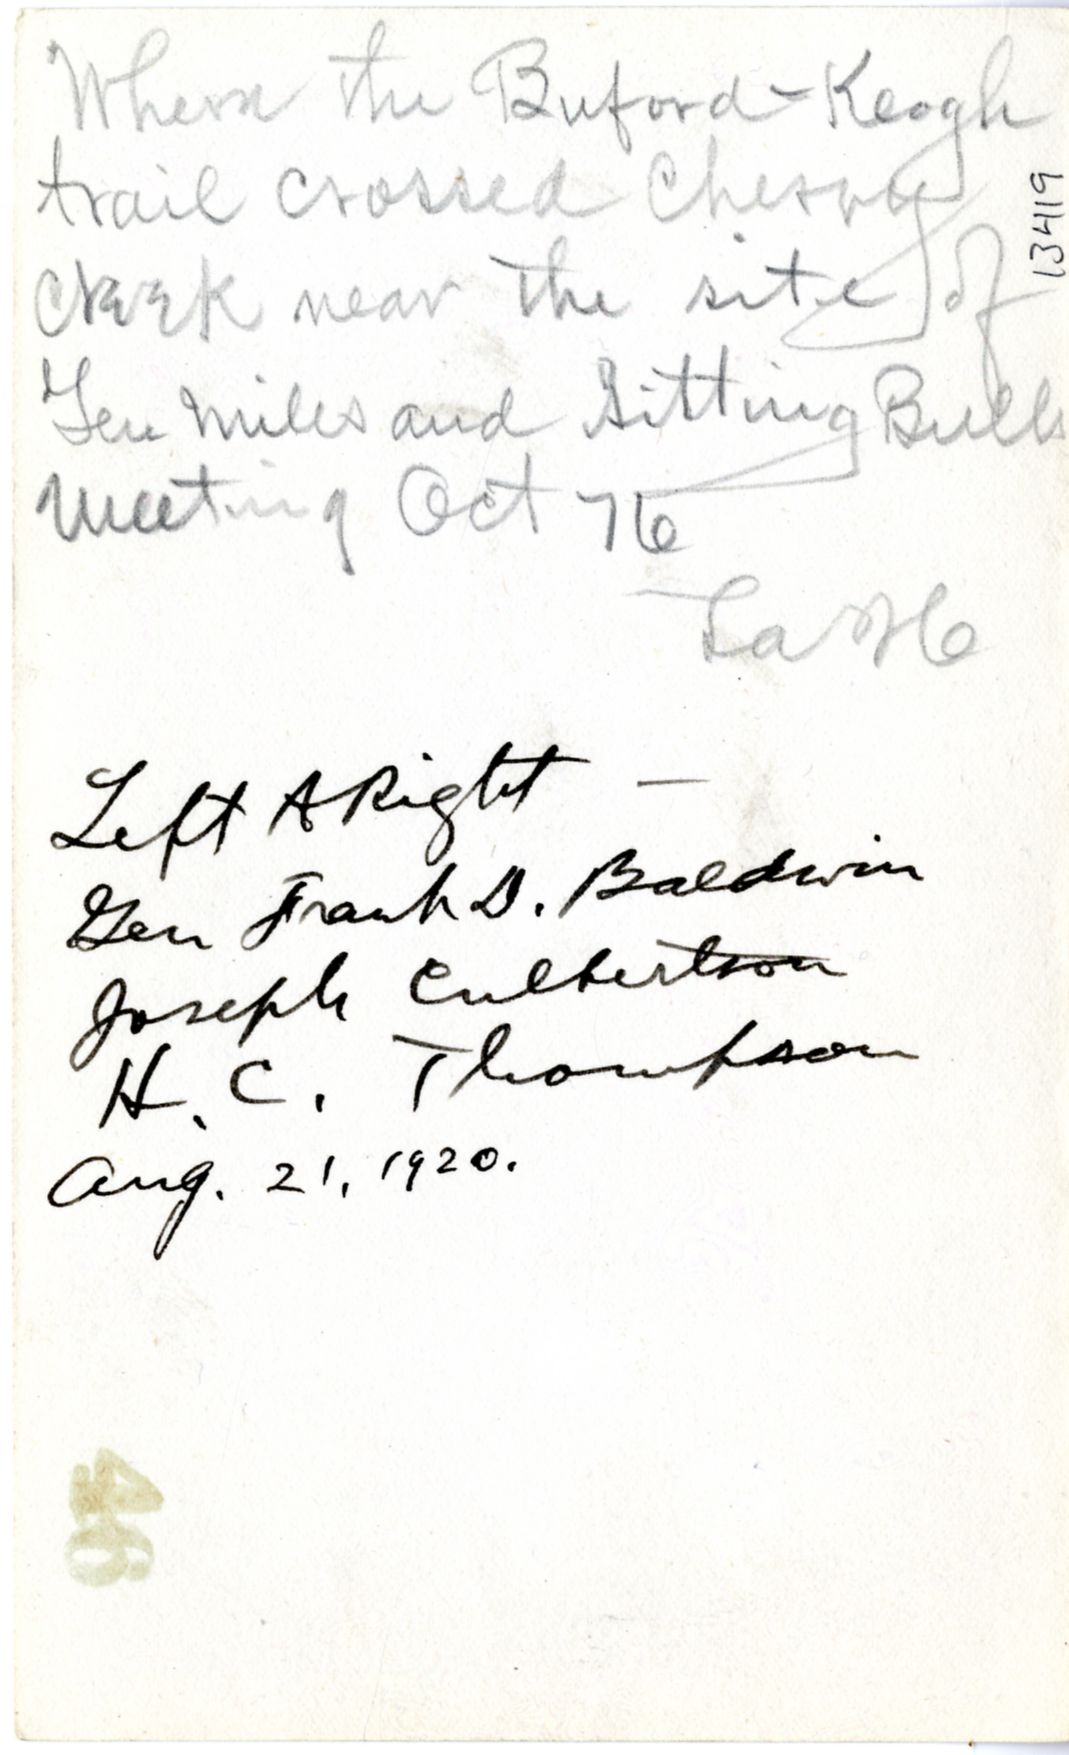 Where the Buford-Keogh
trail crossed Cherry
Creek near the site of
Gen Miles and Sitting Bulls
Meeting Oct 76
13419
Left & Right —
Gen Frank D. Baldwin
Joseph Culbertson
H. C. Thompson
Aug. 21, 1920.
46